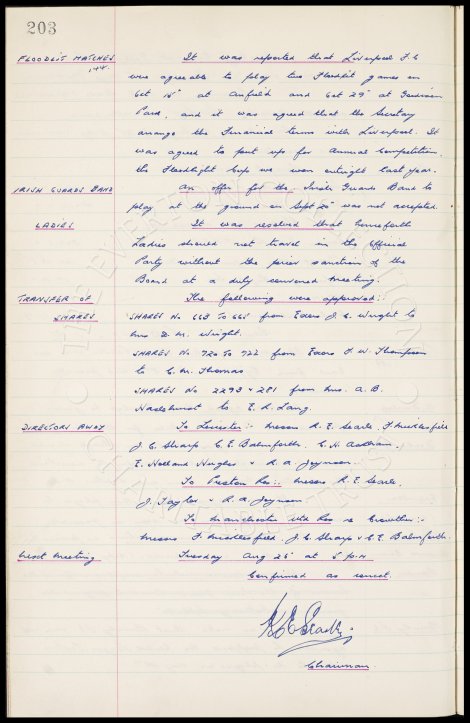 203
FLOODLIT MATCHES
It was reported that Liverpool F.C
were agreeable to play two Floodlit games on
Oct 15th at Anfield and Oct 29th at Goodison
Park, and it was agreed that the Secretary
arrange the Financial terms with Liverpool. It
was agreed to put up for Annual Competition.
the Floodlight Cup we won outright last year.
IRISH GUARDS BAND
An offer for the Irish Guards Band to
play at the ground on Sept 20th was not accepted.
LADIES
It was resolved that henceforth
Ladies should not travel in the Official
Party without the prior sanction of the
Board at a duly convened meeting.
TRANSFER OF SHARES
The following were approved:-
SHARES No 663 To 665 from Exors J. C. Wright to
Mrs D. M. Wright.
SHARES No 720 To 722 from Exors F. W. Thompson
to C. M. Thomas
SHARES No 2293 & 281 from Mrs. A. B.
to E. R. Lang.
DIRECTORS AWAY
To Leicester:- Messrs R. E. Searle, F. Micklesfield
J. C. Sharp, C. E. Balmforth, C. H. Askham,
E. Holland Hughes & R. A. Joynson.
To Preston Res:. Messrs R. E. Searle,
J. Taylor & R. A. Joynson
To Manchester Utd Res v Crowther:-
Messrs F. Micklesfield, J. C. Sharp & C. E. Balmforth.
Next Meeting
Tuesday Aug 26th at 5 P.M
Confirmed as correct.
Chairman
THE EVERTON COLLECTION
CHARITABLE TRUST